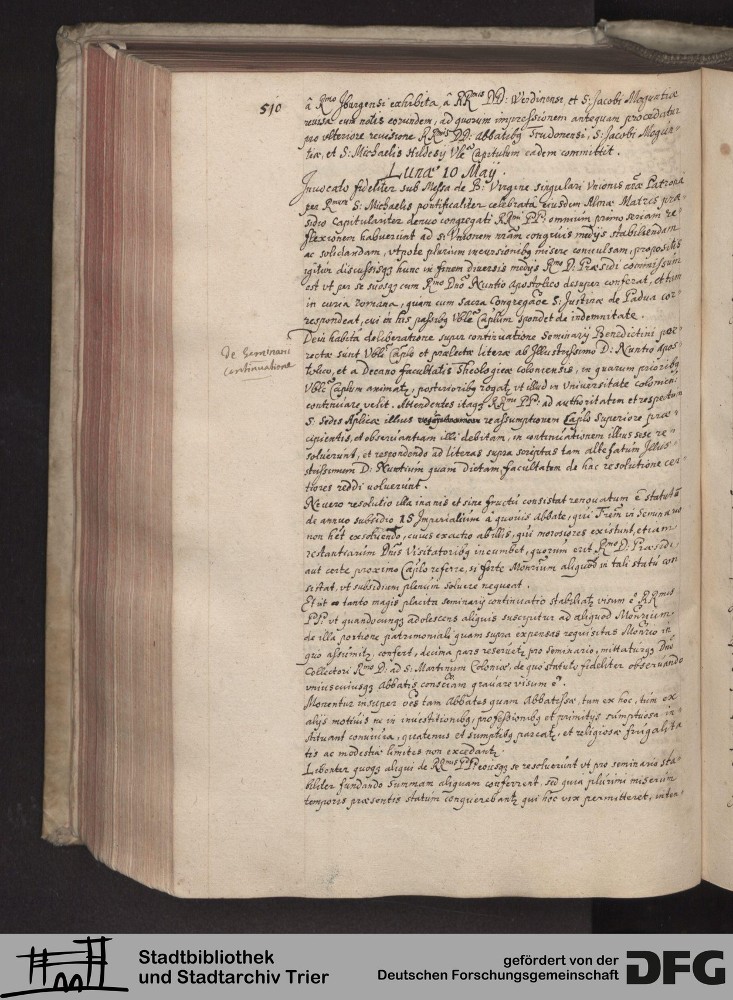 510
â Rmo Iburgensi exhibita, â RRmis DD: Werdinensi, et S: Jacobi Moguntiæ
reuisa cum notis eorundem, ad quorum impressionem antequam procedatur
pro vlteriore reuisione RRmis DD: Abbatibq Trudonensi, S: Jacobi Mogun-
tiæ, et S: Michaelis Hildesy Vble Capitulum eadem committit.
Lunæ 10 May.
Inuocato fideliter sub Messa de B: Virgine singulari Vnionis nræ Patrona
per Rmum S: Michaelis pontificaliter celebrata, eiusdem Almæ Matris præ-
sidio Capitulariter denuo congregati RRmi PP: omnium primo seriam re-
flexionem habuerunt ad S: Vnionem nram congruis medys stabiliendam
ac solidandam, vtpote plurium incursionibq misere conuulsam, propositis
igitur discussisqq hunc in finem diuersis medys Rmo D: Præsidi commissum
est vt per se suosqq cum Rmo Dno Nuntio Apostolico desuper conferat, et tam
in curia romana, quam cum sacra Congregaõe S: Justinæ de Padua cor-
respondeat, cui in his passibq Vble Caplum spondet de indemnitate.
De Seminarii
continuatione
Dein habita deliberatione super continuatione Seminary Benedictini por-
rectæ sunt Vbli Caplo et prælectæ literæ ab Illustrissimo D: Nuntio Apos-
tolico, et a Decano facultatis Theologicæ coloniensis, in quarum prioribq
Vble Caplum animat, posterioribq rogat vt illud in Vniuersitate colonien:
continuare velit. Attendentes itaqq RRmi PP: ad authoritatem et respectum
S: Sedis Aplicæ illius reassumptionem Caplo superiore præ-
cipientis, et obseruantiam illi debitam, in continuationem illius sese re-
soluerunt, et respondendo ad literas supra scriptas tam altefatum Illus-
trissimum D: Nuntium quam dictam facultatem de hac resolutione cer-
tiores reddi voluerunt.
Ne vero resolutio illa inanis et sine fructu consistat renouatum ẽ statutũ
de annuo subsidio 15 Imperialium a quouis abbate, qui Frem in Seminario
non hẽt exsoluendo, cuius exactio ab illis, qui morosiores existunt, etiam
restantiarum Dnis Visitatoribq incumbet, quorum erit Rmo D: Præsidi
aut certe proximo Caplo referre, si forte Monrium aliquod in tali statu con-
sistat, vt subsidium plenum soluere nequeat.
Et vt tanto magis placita seminary continuatio stabiliat, visum ẽ RRmis
PP: vt quandocunqq adolescens aliquis suscipitur ad aliquod Monrium,
de illa portione patrimoniali quam supra expensas requisitas Monrio in
quo assumit confert, decima pars reseruet pro seminario, mittaturqq Dno
Collectori Rmo D: ad S: Martinum Coloniæ, de quo statuto fideliter obseruando
vniuscuiusqq Abbatis consciam grauare visum ẽ.
Monentur insuper oẽs tam Abbates quam Abbatissæ, tum ex hoc, tum ex
alys motiuis ne in inuestitionibq, professionibq et primitys sumptuosa in-
stituant conuiuia, quatenus et sumptibq parcat, et religiosæ frugalita-
tis ac modestiæ limites non excedant.
Libenter quoqq aliqui de RRmis PP: eousqq se resoluerunt vt pro seminario sta-
biliter fundando summam aliquam conferrent, sed quia plurimi miserum
temporis præsentis statum conquerebant, qui hoc vix permitteret, inten-
Stadtbibliothek
und Stadtarchiv Trier
gefördert von der
Deutschen Forschungsgemeinschaft
DFG